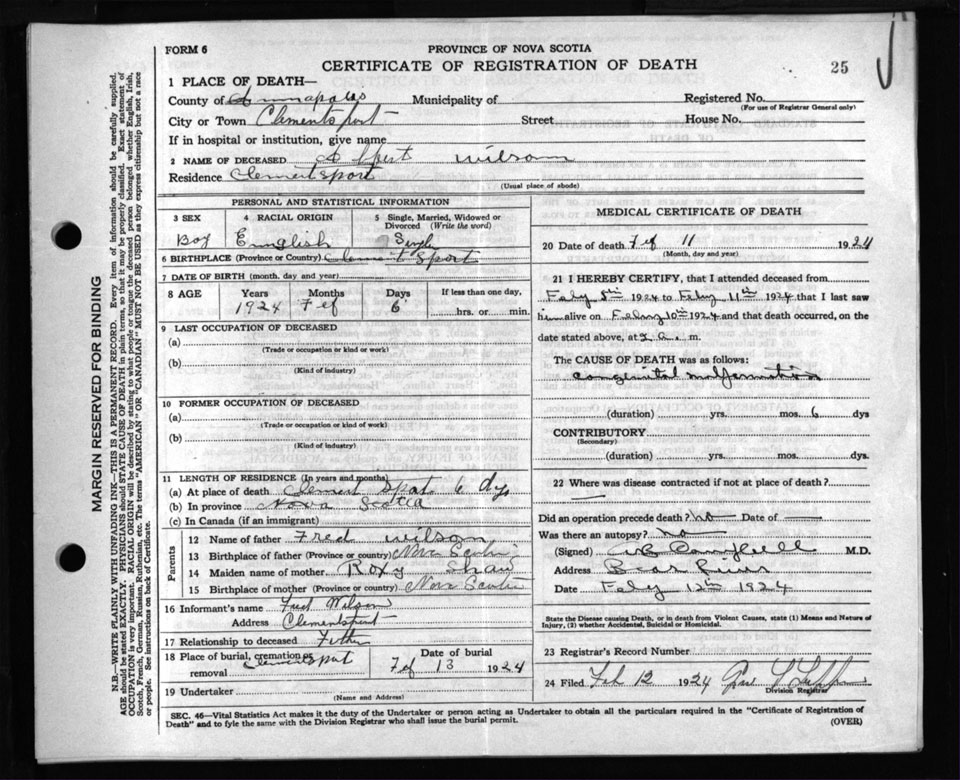 FORM 6
PROVINCE OF NOVA SCOTIA
CERTIFICATE OF REGISTRATION OF DEATH
25
1 PLACE OF DEATH—
County of Annapolis Municipality of Registered No.
(For use of Registrar General only)
City or Town Clementsport Street House No.
If in hospital or institution, give name
2 NAME OF DECEASED wilson
Residence Clementsport
(Usual place of abode)
PERSONAL AND STATISTICAL INFORMATION
3 SEX
Boy
4 RACIAL ORIGIN
English
5 Single, Married, Widowed or Divorced (Write the word)
Single
6 BIRTHPLACE (Province or Country) Clement Sport
7 DATE OF BIRTH (month, day and year)
8 AGE Years Months Days If less than one day,
1924 Fef 6 hrs. or min.
9 LAST OCCUPATION OF DECEASED
(a)
(Trade or occupation or kind of work)
(b)
(Kind of industry)
10 FORMER OCCUPATION OF DECEASED
(a)
(Trade or occupation or kind of work)
(b)
(Kind of industry)
11 LENGTH OF RESIDENCE (In years and months)
(a) At place of death Clement Sport 6 dys
(b) In province Nova Scotia
(c) In Canada (if an immigrant)
Parents
12 Name of father Fred wilson
13 Birthplace of father (Province or country) Nova Scotia
14 Maiden name of mother Roxy Shaw
15 Birthplace of mother (Province or country) Nova Scotia
16 Informant's name Fred Wilson
Address Clementsport
17 Relationship to deceased Father
18 Place of burial, cremation or removal Clementsport
Date of burial
Fef 13 1924
19 Undertaker
(Name and Address)
MEDICAL CERTIFICATE OF DEATH
20 Date of death Fef 11 1924
(Month, day and year)
21 I HEREBY CERTIFY, that I attended deceased from
Feby 5th 1924 to Feby 11th 1924 that I last saw
him alive on Febry 10th 1924 and that death occurred, on the
date stated above, at a. m.
The CAUSE OF DEATH was as follows:
Congenital malformation
(duration) yrs. mos. 6 dys
CONTRIBUTORY
(Secondary)
(duration) yrs. mos. dys.
22 Where was disease contracted if not at place of death?
Did an operation precede death? no Date of
Was there an autopsy? no
(Signed) Campbell M.D.
Address Bear River
Date Feby 12th 1924
State the Disease causing Death, or in death from Violent Causes, state (1) Means and Nature of
Injury, (2) whether Accidental, Suicidal or Homicidal.
23 Registrar's Record Number
24 Filed Feb 12 1924
Division Registrar
SEC. 46—Vital Statistics Act makes it the duty of the Undertaker or person acting as Undertaker to obtain all the particulars required in the "Certificate of Registration of
Death" and to fyle the same with the Division Registrar who shall issue the burial permit.
(OVER)
MARGIN RESERVED FOR BINDING
N.B.—WRITE PLAINLY WITH UNFADING INK—THIS IS A PERMANENT RECORD. Every item of information should be carefully supplied.
AGE should be stated EXACTLY. PHYSICIANS should STATE CAUSE OF DEATH in plain terms, so that it may be properly classified. Exact statement of
OCCUPATION is very important. RACIAL ORIGIN will be described by stating to what people or tongue the deceased person belonged whether English, Irish,
Scotch, French, German, Russian, Ruthenian, etc. The terms "AMERICAN" OR "CANADIAN" MUST NOT BE USED as they express citizenship but not a race
or people. See instructions on back of Certificate.